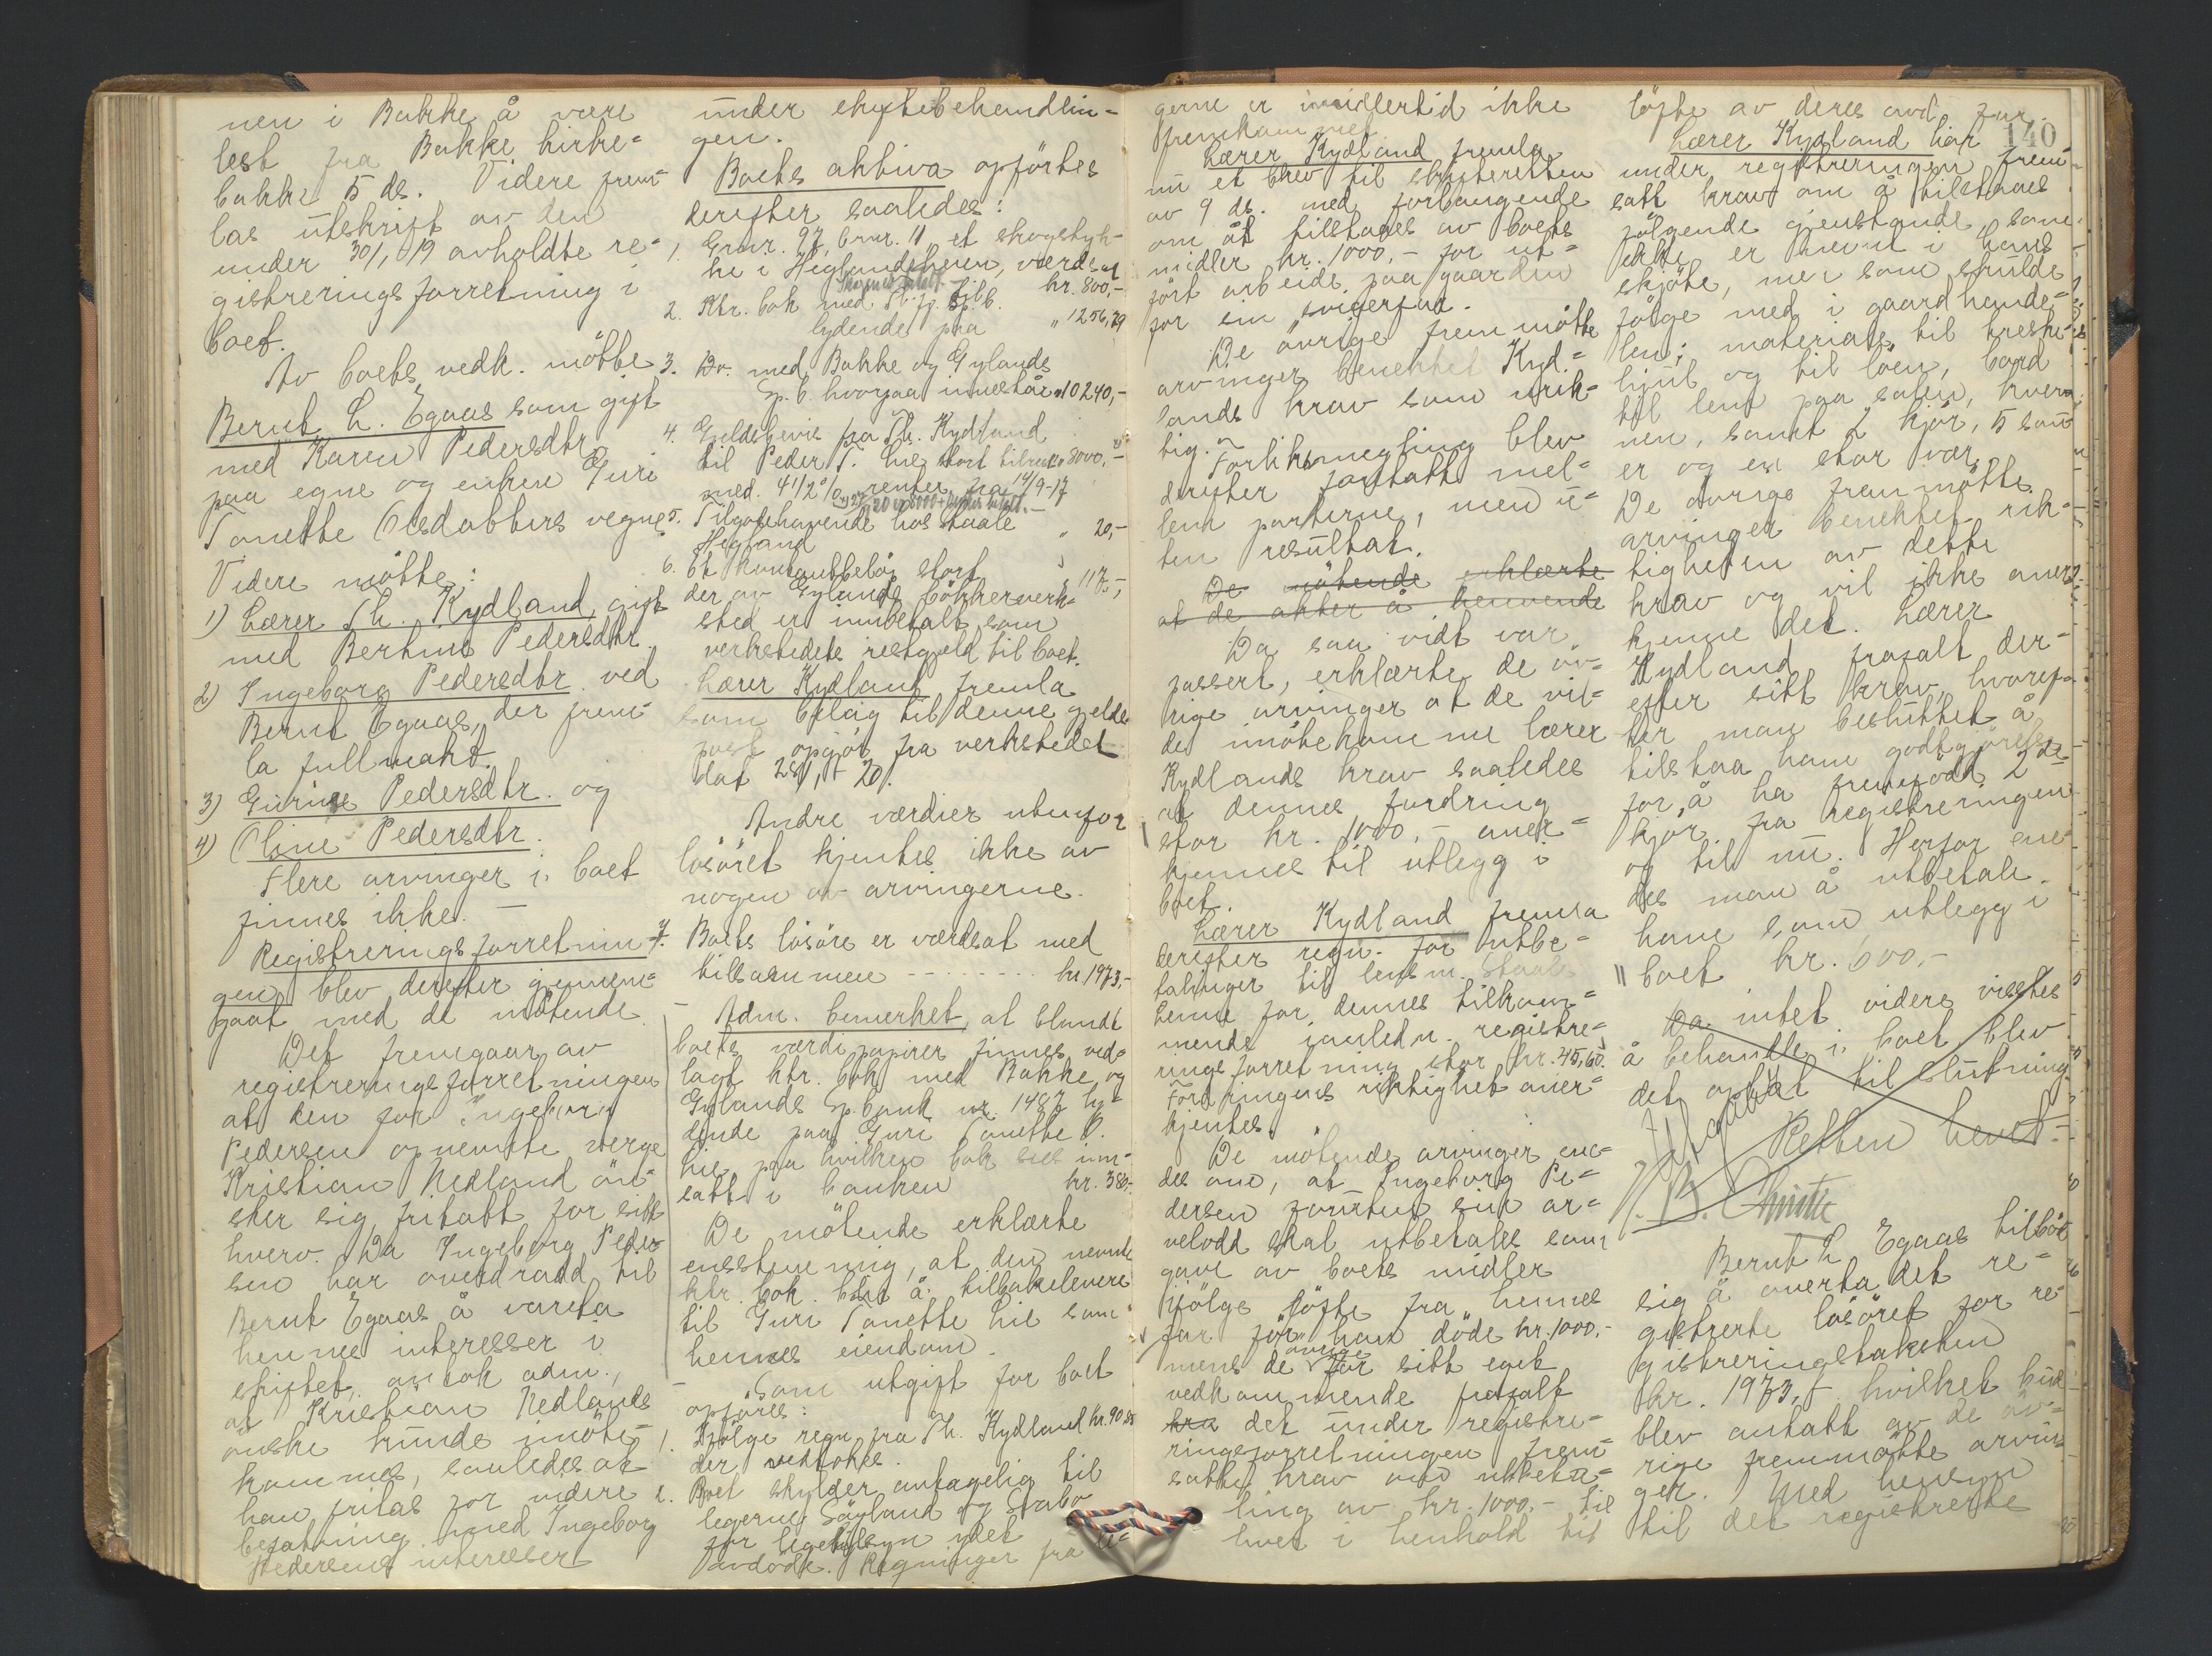 nen i Bakke å være
lest fra Bakke kirke=
bakke 5 ds. Videre frem=
las utskrift av den
under 30/1 19 avholdte re=
gistreringsforretning i
boet.
Av boets vedk. møtte
Bernt L. Egaas som gift
med Karen Pedersdtr.
paa egne og enken Guri
Tonette Olsdatters vegne.
Videre møtte:
1) Lærer Th. Kydland, gift
med Bertine Pedersdtr.
2) Ingeborg Pedersdtr. ved
Bernt Egaas, der frem=
la fullmakt.
3) Gurine Pedersdtr. og
4) Oline Pedersdtr.
Flere arvinger i boet
finnes ikke. —
Registreringsforretnin=
gen blev derefter gjennem=
gaat med de møtende.
Det fremgaar av
registreringsforretningen
at den for Ingeborg
Pedersen opnevnte verge
Kristian Nedland øn=
sker sig fritatt for sitt
hverv. Da Ingeborg Peder
sen har overdradd til
Bernt Egaas å vareta
hennes interesser i
skiftet, antok adm.,
at Kristian Nedlands
ønske kunde imøte=
kommes, saaledes at
han fritas for videre
befatning med Ingeborg
Pedersens interesser
under skiftebehandlin=
gen.
Boets aktiva opførtes
derefter saaledes:
1. Gnr. 97, bnr. 11 et skogstyk=
ke i Heglandsheien, værdsat
kr. 800,-
2. Ktr. bok med Fl.fj. Sp.b.
lydende paa " 1256,79
3. Do. med Bakke og Gylands
Sp.b. hvorpaa innestår " 10240,-
4. Gjeldsbevis fra Th. Kydland
til Peder T. Lie, stort tilrest " 8000,-
med 4 1/2 % renter fra 14/9-17
5. Tilgodehavende hos Staale
Hegland " 20,-
6. Et kontantbeløp stort " 117,-
der av Gylands bøkkerverk=
sted er innbetalt som
verkstedets restgjeld til boet.
Lærer Kydland fremla
som bilag til denne gjelds
post opgjør fra verkstedet
dat 28/1 - 20.
Andre værdier utenfor
løsøret kjentes ikke av
nogen av arvingerne.
7. Boets løsøre er værdsat med
tilsammen - - - - - - - - kr. 1973,-
Adm. bemerket, at blandt
boets værdipapirer finnes ved=
lagt ktr. bok med Bakke og
Gylands Sp.bank nr. 1487 ly=
dende paa Guri Tonette O.
Lie, paa hvilken bok sees inn=
satt i banken kr. 380,-
De møtende erklærte
enstemmig, at den nevnte
ktr. bok blir å tilbakelevere
til Guri Tonette Lie som
hennes eiendom.
Som utgift for boet
opføres:
1. Ifølge regn. fra Th. Kydland kr. 90,85
der vedtokes.
2. Boet skylder antagelig til
legerne Søyland og Stabo
for legetilsyn ydet
avdøde. Regninger fra le=
140
gerne er imidlertid ikke
fremkommet.
Lærer Kydland fremla
nu et brev til skifteretten
av 9 ds. med forlangende
om at tilstaaes av boets
midler kr. 1000,- for ut=
ført arbeide paa gaarden
for sin svigerfar.
De øvrige fremmøtte
arvinger benektet Kyd=
lands krav som urik=
tig. Forliksmegling blev
derefter foretatt mel=
lem parterne, men u=
ten resultat.
De møtende erklærte
at de akter å henvende
Da saa vidt var
passert, erklærte de øv=
rige arvinger at de vil=
de imøtekomme lærer
Kydlands krav saaledes
at dennes fordring
stor kr. 1000,- aner=
kjennes til utlegg i
boet.
Lærer Kydland fremla
derefter regn. for utbe=
talinger til lensm. Staal
henne for dennes tilkom=
mende i anledn. registre=
ringsforretning stor kr. 45,60.
Fordringens riktighet aner=
kjentes.
De møtende arvinger ene=
des om, at Ingeborg Pe=
dersen foruten sin ar=
velodd skal utbetales som
gave av boets midler
ifølge løfte fra hennes
far før han døde kr. 1000,-
mens de øvrige for sitt eget
vedkommende frafalt
kra det under registre=
ringsforretningen frem=
satte krav om utbeta=
ling av kr. 1000,- til
hver i henhold til
løfte av deres avd. far.
Lærer Kydland har
under registreringen frem=
satt krav om å tilstaaes
følgende gjenstande, som
ikke er nevnt i hans
skjøte, men som skulde
følge med i gaardhande=
len: materiale til treske=
hjul og til løen, bord
til lem paa salen, kver=
nen, samt 2 kjør, 5 sau=
er og en stor vær.
De øvrige fremmøtte
arvinger benektet rik=
tigheten av dette
krav og vil ikke aner=
kjenne det. Lærer
Kydland frafalt der=
efter sitt krav, hvoref=
ter man besluttet å
tilstaa ham godtgjørelse
for å ha fremfødd 2 de
kjør fra registreringen
og til nu. Herfor ene=
des man å utbetale
ham som utlegg i
boet kr. 600,-
Da intet videre visstes
å behandle i boet blev
det optat til slutning
Retten hevet.
Bernt L Egaas tilbød
sig å overta det re=
gistrerte løsøret for re=
gistreringstaksten
kr. 1973,- hvilket bud
blev antatt av de øv=
rige fremmøtte arvin
ger. Med hensyn
til det registrerte